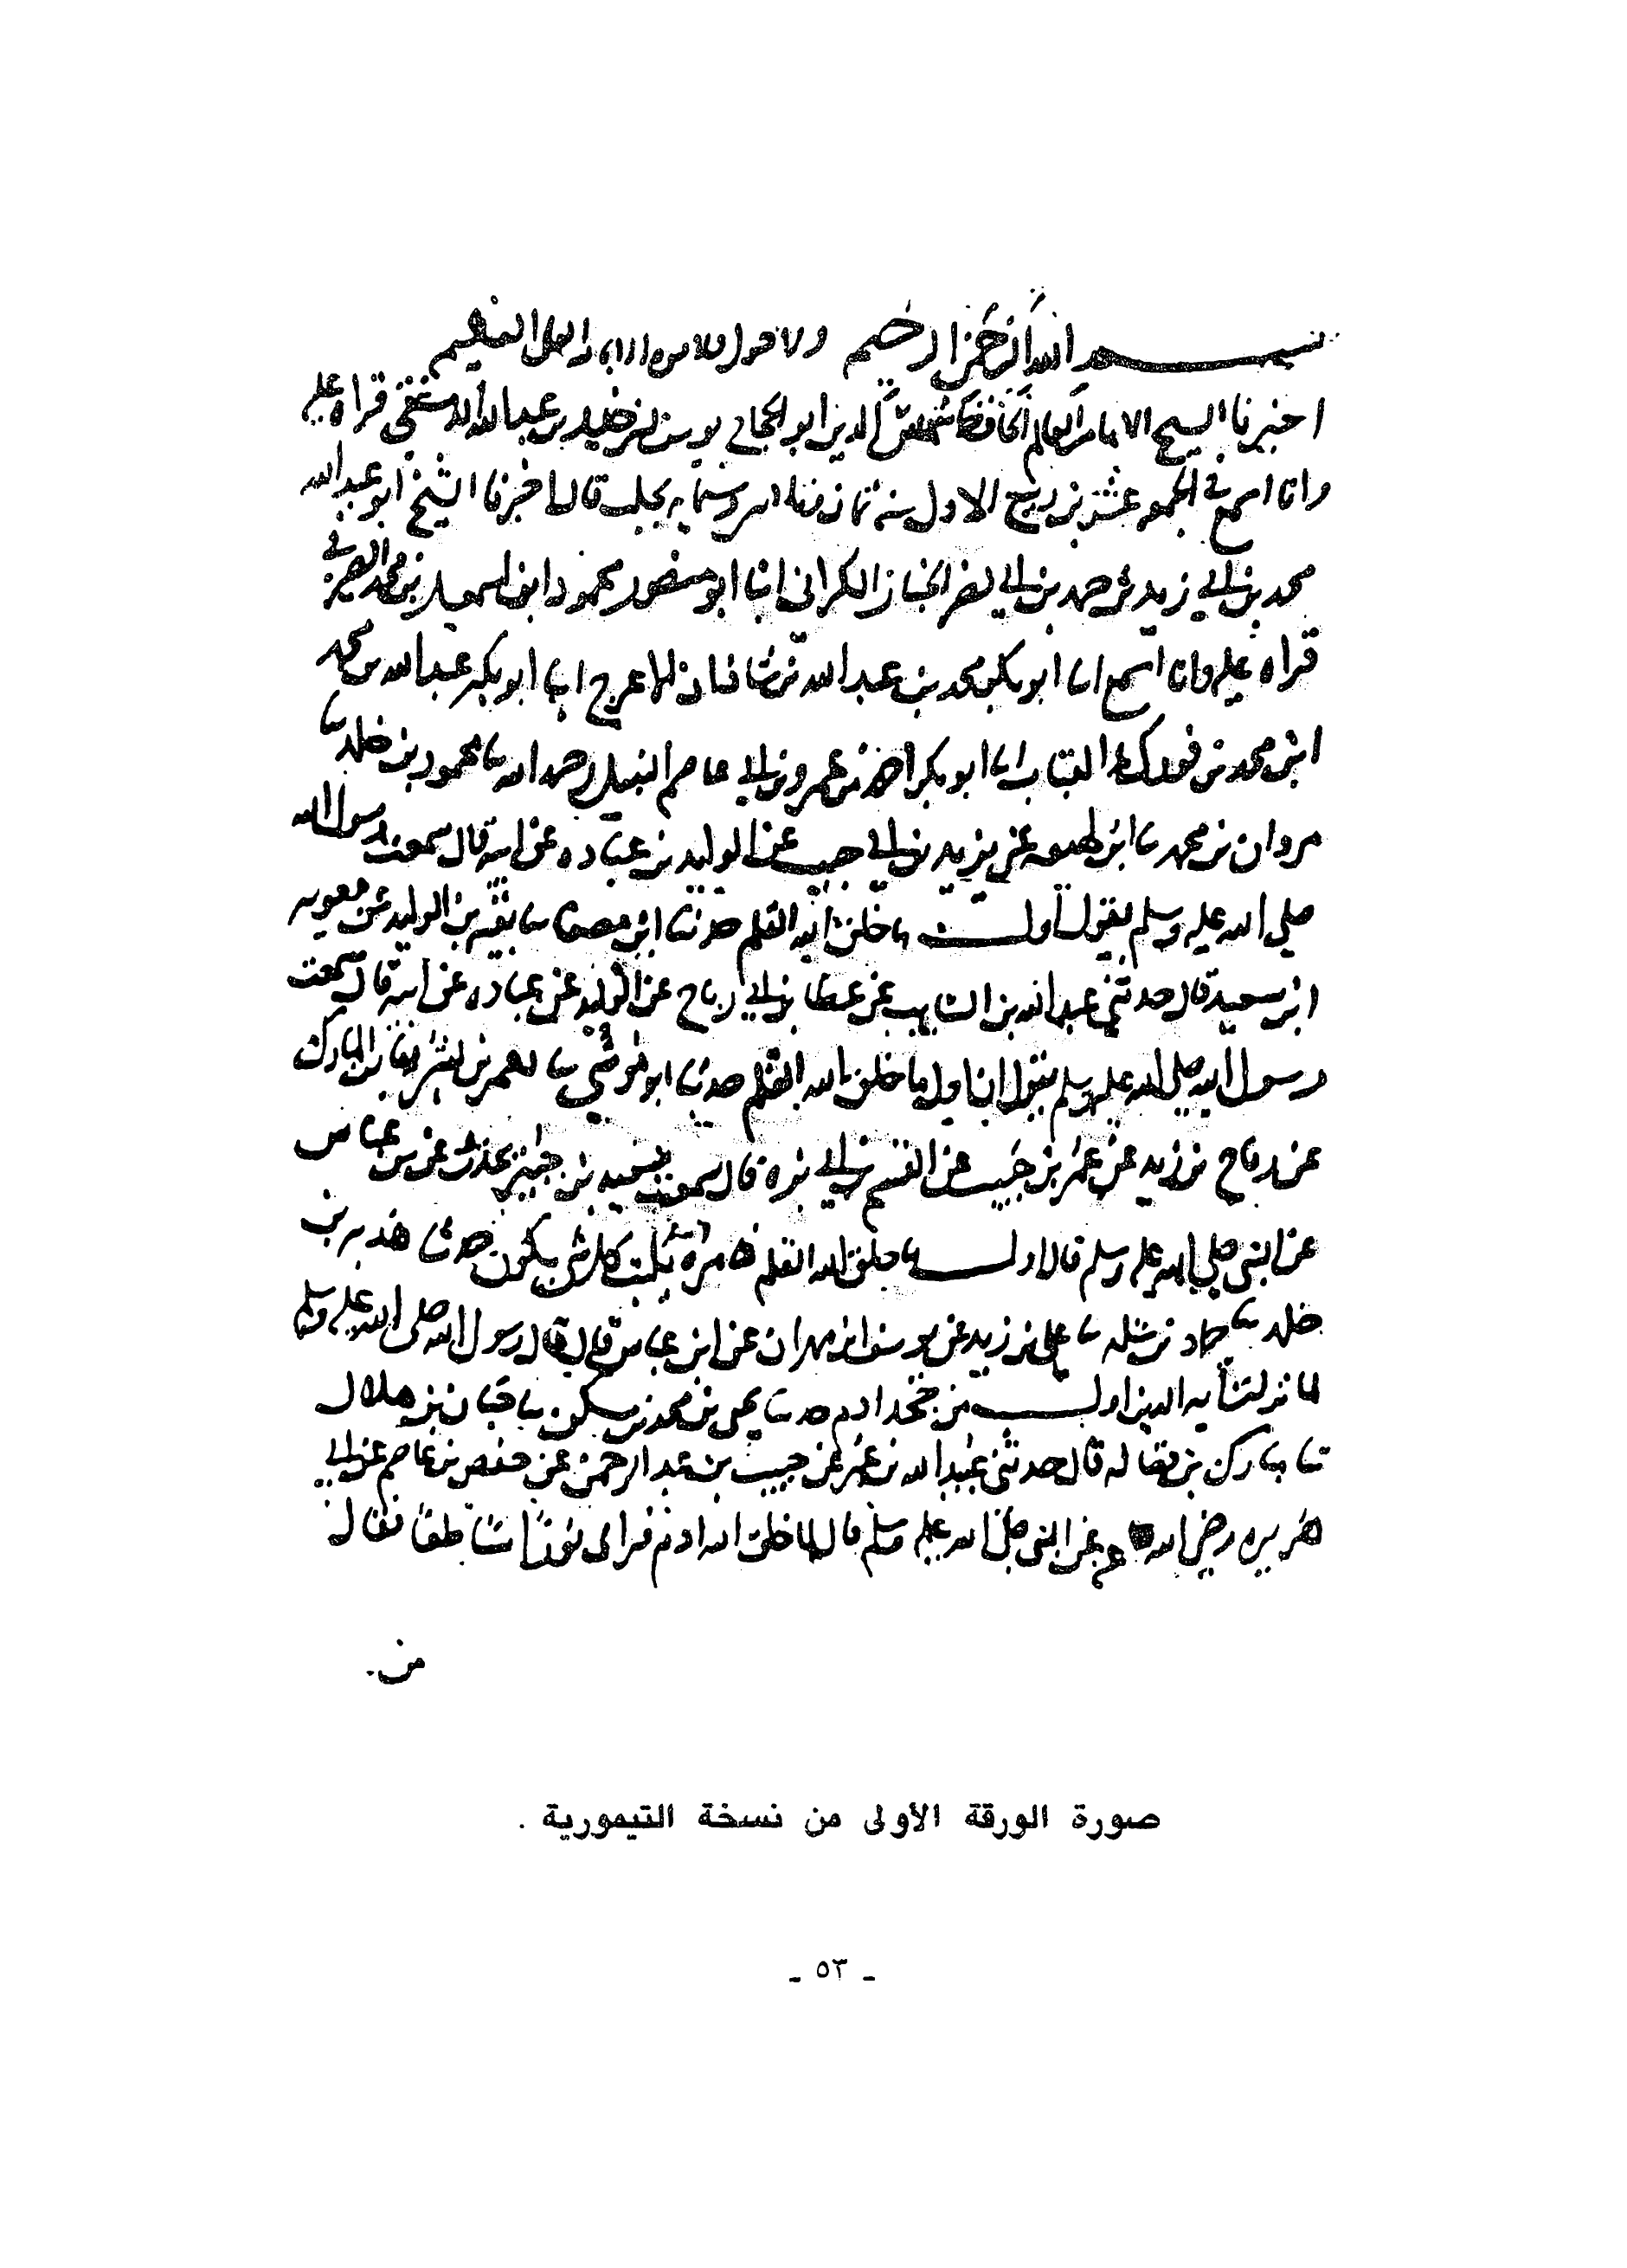 بسم الله الرحمن الرحيم ولا حول ولا قوه الا بالله العلى العظيم
اخبرنا الشيح الامام العالم الحافظ شمس الدين ابو الحجاج يوسف بن خليل بن عبد الله الدمشقي قراه عليه
وانا اسمع في عشر ربيع الاول سنه ثمان وستمايه بحلب قال اخبرنا الشيخ ابو عبد الله
محمد بن ابي زيد بن حمد بن ابي نصر الخباز الكراني انبا ابو منصور محمود ابن اسمعيل بن محمد الصيرفي
قراه عليه وانا اسمع ابنا ابو بكر محمد بن عبد الله بن شاذان الاعرج ابنا ابو بكر عبد الله بن محمد
ابن محمد بن فورك القباب ابنا ابو بكر احمد بن عمرو بن ابي عاصم النبيل رحمه الله ثنا محمود بن خلد ثنا
مروان بن محمد ثنا ابن لهيعه عن يزيد بن ابي حبيب عن الوليد بن عباده عن ابيه قال سمعت رسول الله
صلي الله عليه وسلم يقول اول ما خلق الله القلم حدثنا ابن مصفا ثنا بقيه بن الوليد عن معويه
ابن سعيد قال حدثني عبد الله بن السايب عن عطا بن ابي رباح عن الوليد بن عباده عن ابيه قال سمعت
رسول الله صلى الله عليه وسلم يقول ان اول ما خلق الله القلم حدثنا ابو موسي ثنا معمر بن بشر ثنا ابن المبارك
عن رباح بن زيد عن عمر بن حبيب عن القسم بن ابي بزه قال سمعت سعيد بن جبير يحدث عن بن عباس
عن النبي صلي الله عليه وسلم قال اول ما خلق الله القلم فامره فكتب كل شي يكون حدثنا هدبه بن
خلد ثنا حماد بن سلمه ثنا علي بن زيد عن يوسف ابن مهران عن ابن عباس قال قال رسول الله صلى الله عليه وسلم
لما نزلت ايه الدين اول من جحد ادم حدثنا يحيى بن محمد بن سكن ثنا حبان بن هلال
ثنا مبارك بن فضاله قال حدثني عبيد الله بن عمر عن خبيب بن عبد الرحمن عن حفص بن عاصم عن ابي
هريره رضي الله عن النبي صلى الله عليه وسلم قال لما خلق الله ادم فراى نورا ساطعا فقال
من.
صورة الورقة الأولى من نسخة التيمورية .
ـ ٥٣ ـ